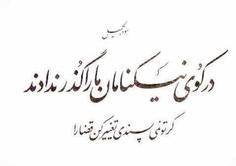 هوالجمیل
در کوی نیکنامان ما را گذر ندادند
گر تو نمی پسندی تغییر کن قضا را